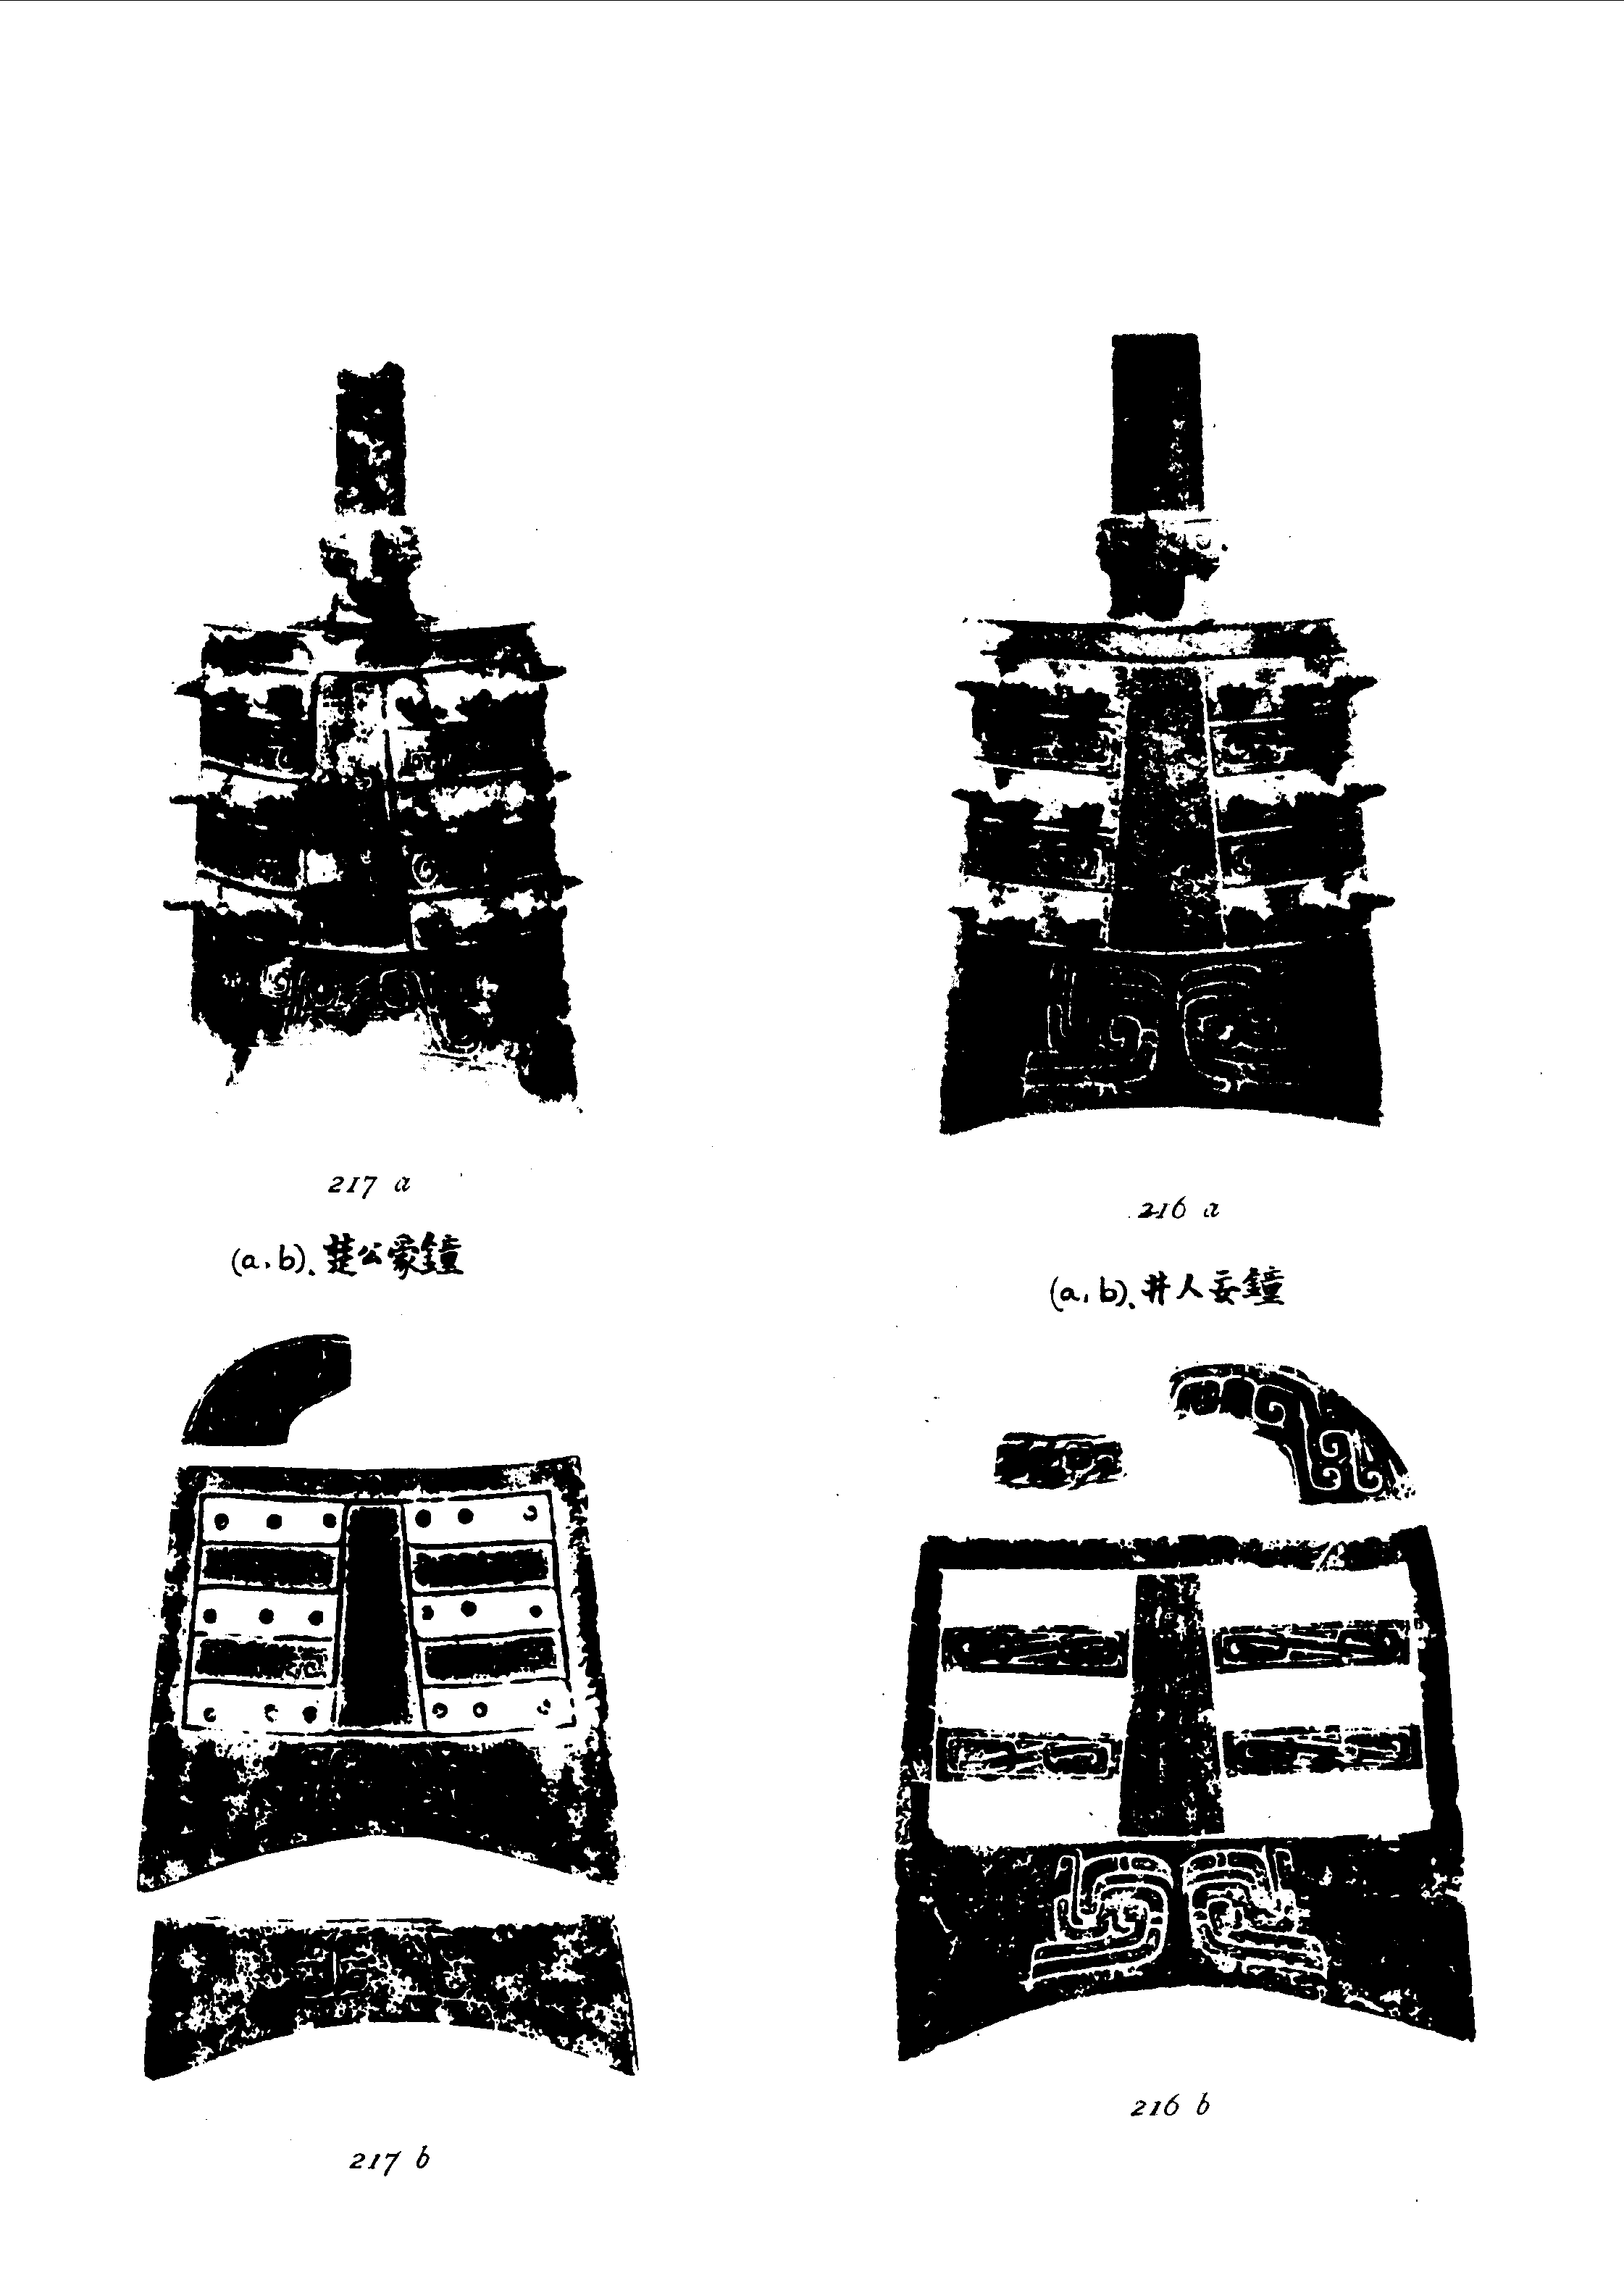 217 a
(a,b).楚公鐘
217 b
216 a
(a,b).井人妄鐘
216 b